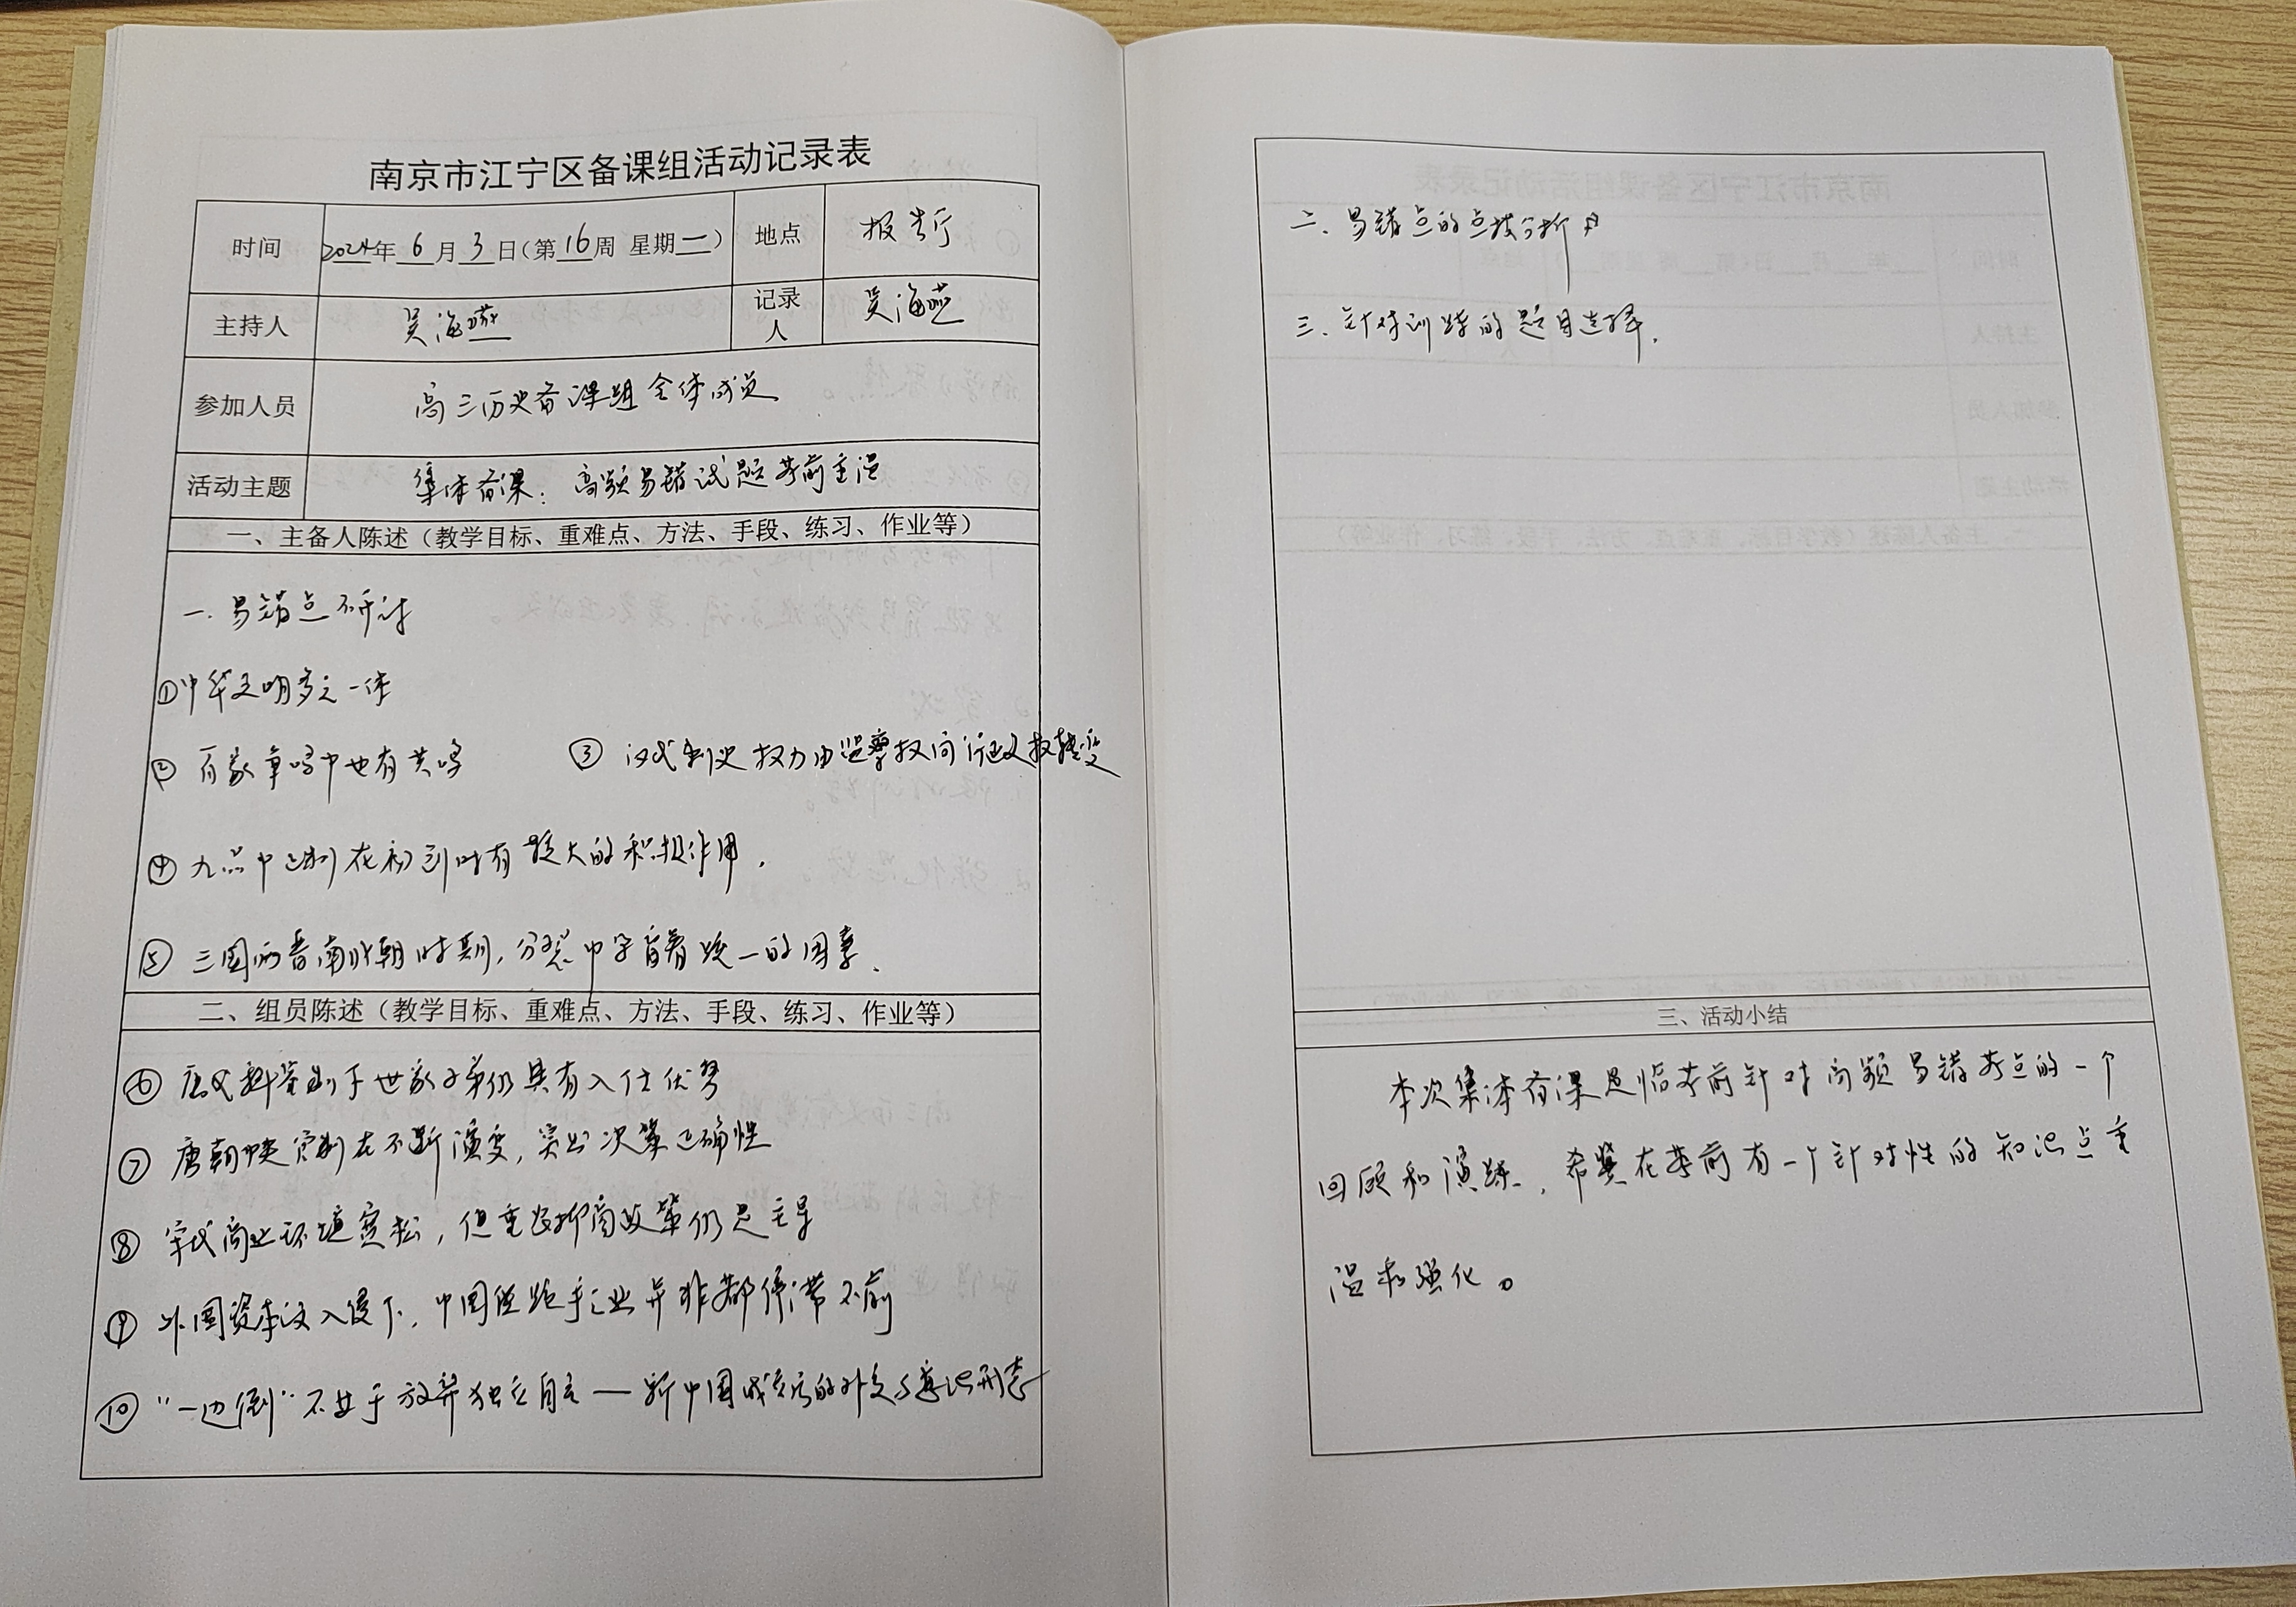 南京市江宁区备课组活动记录表
时间 2024年 6 月 3 日(第16周 星期一) 地点 报告厅
主持人 吴海燕 记录人 吴海燕
参加人员 高三历史备课组全体成员
活动主题 集体备课：高频易错试题考前重温
一、主备人陈述（教学目标、重难点、方法、手段、练习、作业等）
一. 易错点研讨
①中华文明多元一体
② 百家争鸣中也有共鸣 ③ 汉代刺史权力由监察权向行政权转变
④ 九品中正制在初到时有较大的积极作用.
⑤ 三国两晋南北朝时期, 分裂中孕育着统一的因素.
二、组员陈述（教学目标、重难点、方法、手段、练习、作业等）
⑥ 唐代科举制下世家子弟仍具有入仕优势
⑦ 唐朝中央官制在不断演变, 突出决策正确性
⑧ 宋代商业环境宽松, 但重农抑商政策仍是主导
⑨ 外国资本主义入侵下, 中国传统手工业并非都停滞不前
⑩ "一边倒"不等于放弃独立自主 — 新中国成立后的外交与意识形态
二、易错点的点拨分析
三. 针对训练的题目选择.
三、活动小结
本次集体备课是临考前针对高频易错考点的一个
回顾和演练, 希冀在考前有一个针对性的知识点重
温和强化。